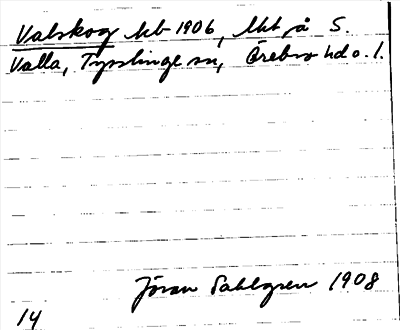 Valskog kb 1906, lht på S.
Valla, Tysslinge sn, Örebro hd o. l.
Jöran Sahlgren 1908
14